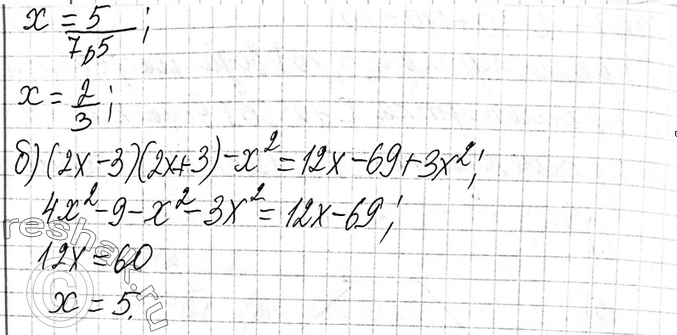 x = 5/7,5;
x = 2/3;
б) (2x-3)(2x+3)-x²=12x-69+3x²;
4x²-9-x²-3x²=12x-69;
12x=60
x=5.
reshak.ru